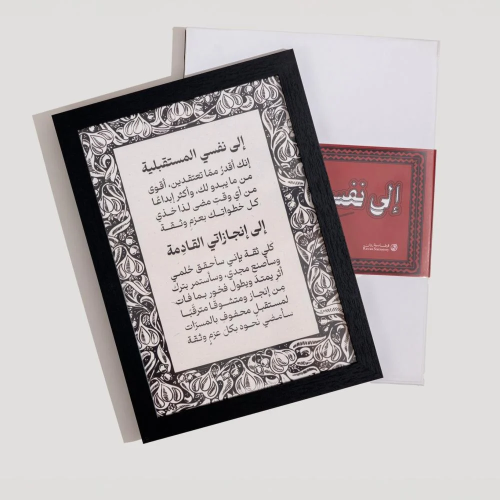 إلى نفسي المستقبلية
إنك أقدرُ ممّا تعتقدين، أقوى
من ما يبدو لك، وأكثر إبداعًا
من أي وقت مضى لذا خذي
كل خطواتك بعزم وثقة
إلى إنجازاتي القادِمة
كلي ثقة بأني سأحقق حلمي
وسأصنع مجدي، وسأستمر بترك
أثر يمتدّ ويطول فخور بما فات
من إنجاز ومتشوقًا مترقبًا
لمستقبلٍ محفوف بالمسرات
سأمضي نحوه بكل عزمٍ وثقة
إلى نفس